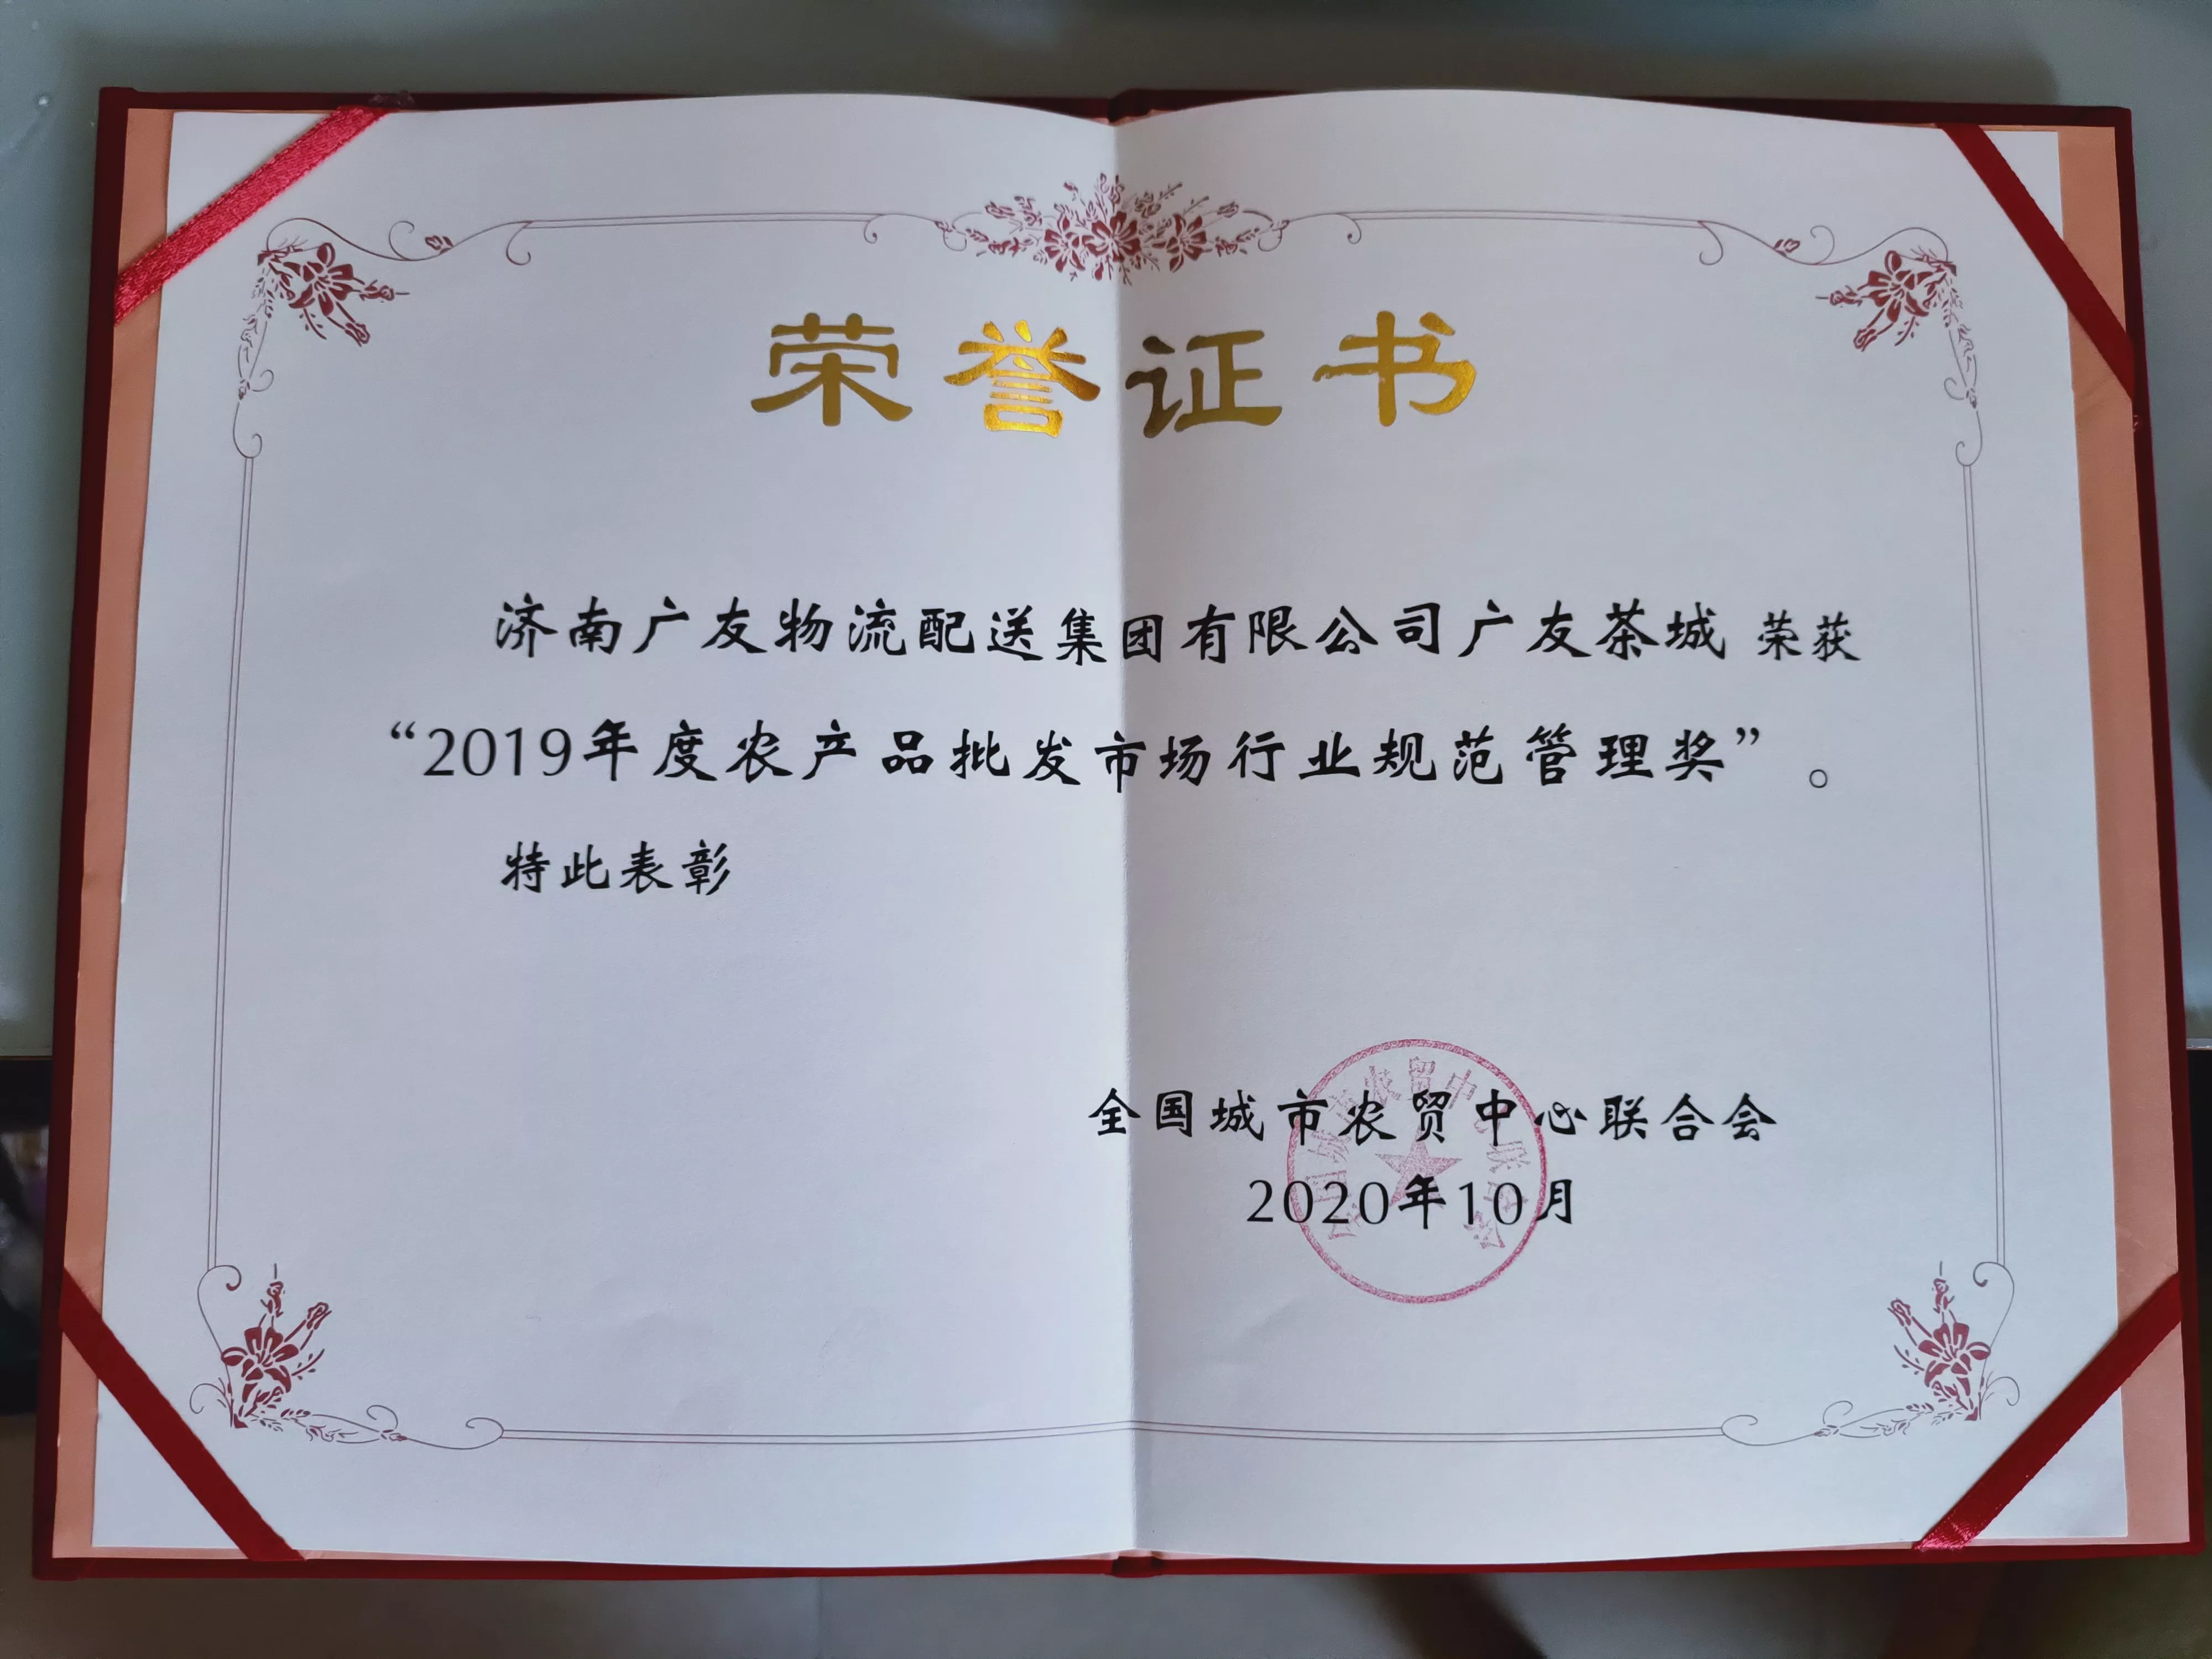 荣誉证书
济南广友物流配送集团有限公司广友茶城 荣获
“2019年度农产品批发市场行业规范管理奖”。
特此表彰
全国城市农贸中心联合会
2020年10月
全国城市农贸中心联合会